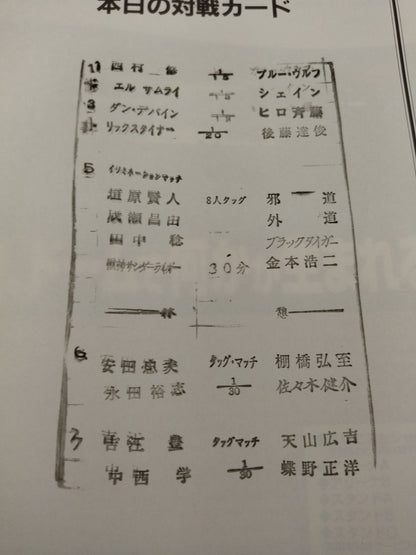 本日の対戦カード
1 西村 修 1/15 ブルー・ウルフ
エル サムライ 1/15 シェイン
3 ダン・デバイン 1/15 ヒロ斉藤
リックスタイナー 1/20 後藤達俊
5 イリミネーションマッチ
垣原賢人 8人タッグ 邪道
成瀬昌由 外道
田中 稔 ブラックタイガー
獣神サンダーライガー 30分 金本浩二
休 憩
6 安田忠夫 タッグ・マッチ 棚橋弘至
永田裕志 1/30 佐々木健介
7 吉江 豊 タッグマッチ 天山広吉
中西 学 1/30 蝶野正洋